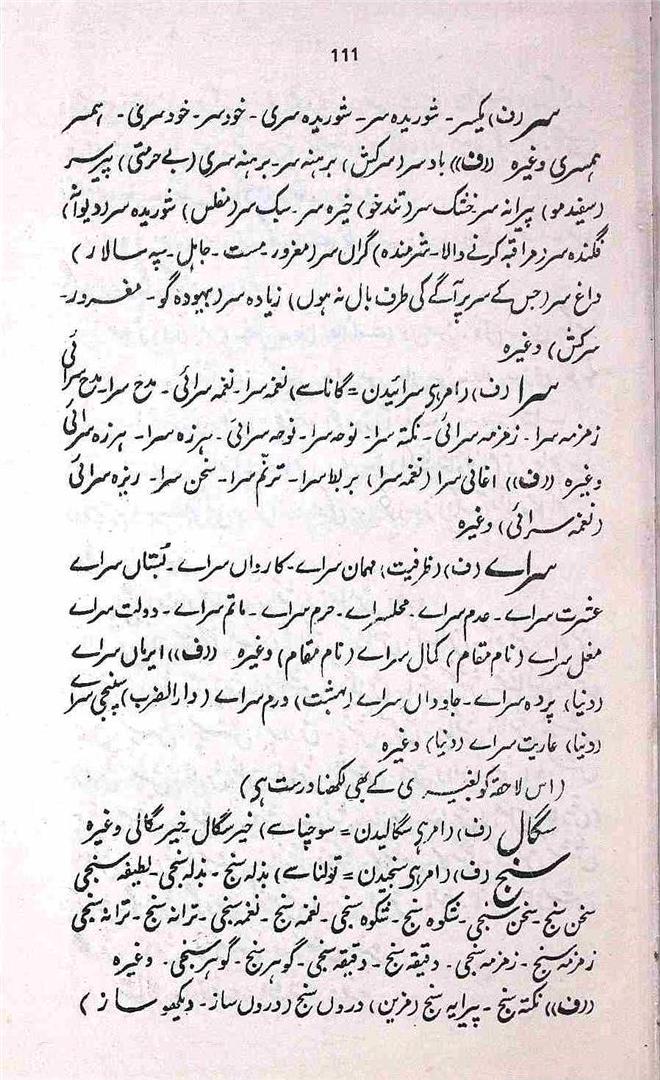 111
سر (ف) یکسر۔ شوریدہ سر۔ شوریدہ سری۔ خود سر۔ خود سری۔ ہمسر
ہمسری وغیرہ ((ف)) باد سر (سرکش) برہنہ سر۔ برہنہ سری (بے حرمتی) پیر سر
(سفید مو) پیرانہ سر خشک سر (تند خو) خیرہ سر۔ سبک سر (مفلس) شوریدہ سر (دیوانہ)
فگندہ سر (مراقبہ کرنے والا۔ شرمندہ) گراں سر (مغرور۔ مست۔ جاہل۔ سپہ سالار)
داغ سر (جس کے سر پر آگے کی طرف بال نہ ہوں) زیادہ سر (بیہودہ گو۔ مغرور۔
سرکش) وغیرہ
سرا (ف) (امر ہی سرائیدن = گانا سے) نغمہ سرا۔ نغمہ سرائی۔ مدح سرا۔ مدح سرائی
زمزمہ سرا۔ زمزمہ سرائی۔ نکتہ سرا۔ نوحہ سرا۔ نوحہ سرائی۔ ہرزہ سرا۔ ہرزہ سرائی
وغیرہ ((ف)) اغانی سرا (نغمہ سرا) بربلا سرا۔ ترنّم سرا۔ سخن سرا۔ ریزہ سرائی
(نغمہ سرائی) وغیرہ
سراے (ف) (ظرفیت) مہمان سراے۔ کارواں سراے۔ سراے
عشرت سراے۔ عدم سراے۔ محلسراے۔ حرم سراے۔ ماتم سراے۔ دولت سراے
مغل سراے (نام مقام) کمال سراے (نام مقام) وغیرہ ((ف)) ایرماں سراے
(دنیا) پردہ سراے۔ جاوداں سراے (بہشت) درم سراے (دار الضرب) سپنجی سراے
(دنیا) عاریت سراے (دنیا) وغیرہ
(اس لاحقہ کو بغیر ی کے بھی لکھنا درست ہی)
سگال (ف) (امر ہی سگالیدن = سوچنا سے) خیر سگال۔ خیر سگالی وغیرہ
سنج (ف) (امر ہی سنجیدن = تولنا سے) بذلہ سنج۔ بذلہ سنجی۔ لطیفہ سنجی
سخن سنج۔ سخن سنجی۔ شکوہ سنج۔ شکوہ سنجی۔ نغمہ سنج۔ نغمہ سنجی۔ ترانہ سنج۔ ترانہ سنجی
زمزمہ سنج۔ زمزمہ سنجی۔ دقیقہ سنج۔ دقیقہ سنجی۔ گوہر سنج۔ گوہر سنجی۔ وغیرہ
((ف)) نکتہ سنج۔ پیرایہ سنج (مزین) دروں سنج (دروں ساز۔ دیکھو ساز)